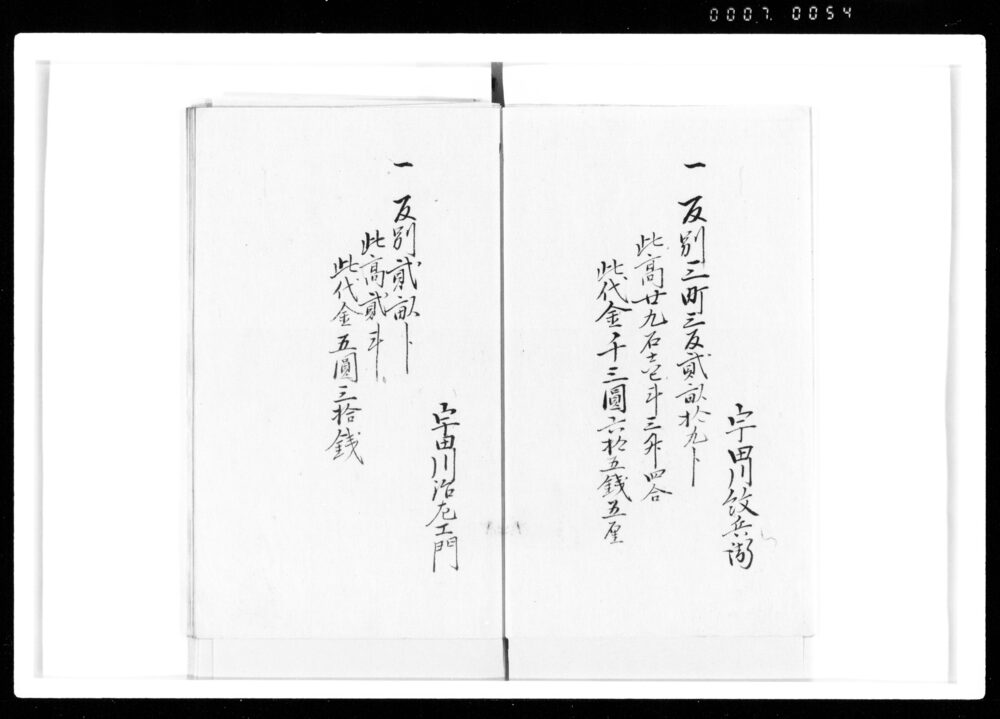 0007 0054
宇田川紋兵衛
一 反別三町三反貳畝拾九卜
此高廿九石壱斗三升四合
此代金千三圓六拾五錢五厘
宇田川治左エ門
一 反別貳畝卜
此高貳斗
此代金五圓三拾錢